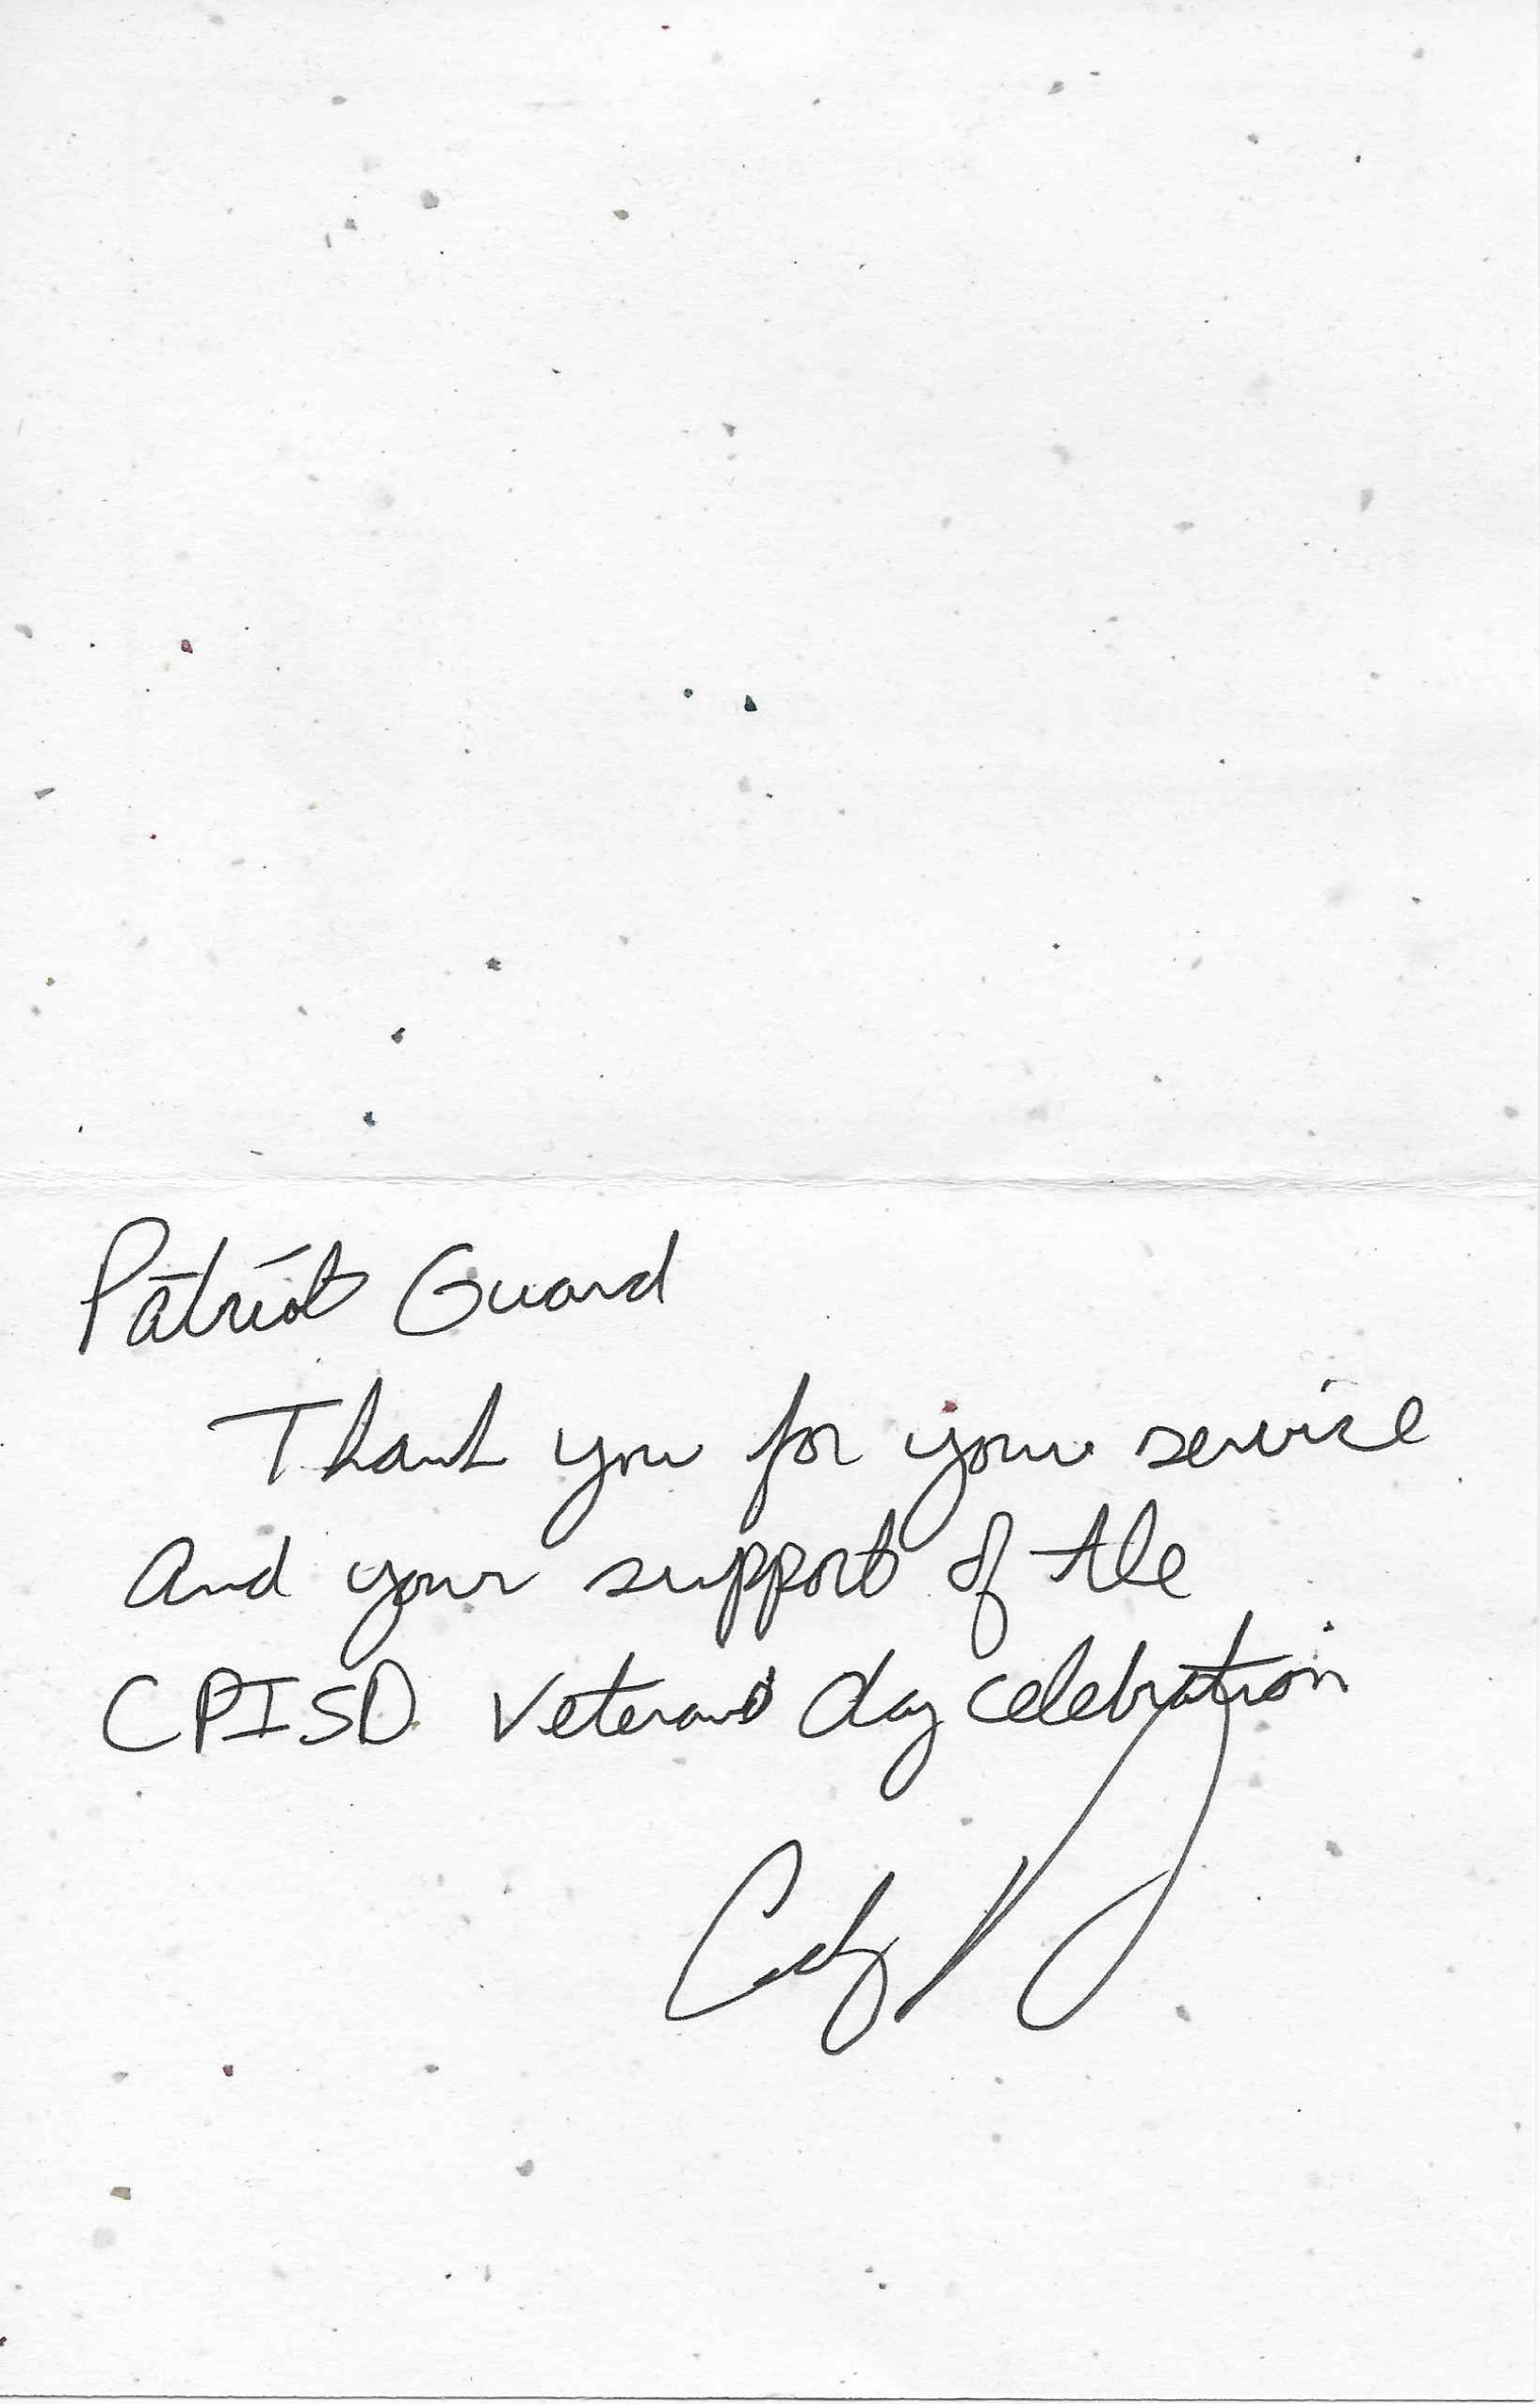 Patriot Guard
Thank you for your service
and your support of the
CPISD Veterans day celebration
Cody